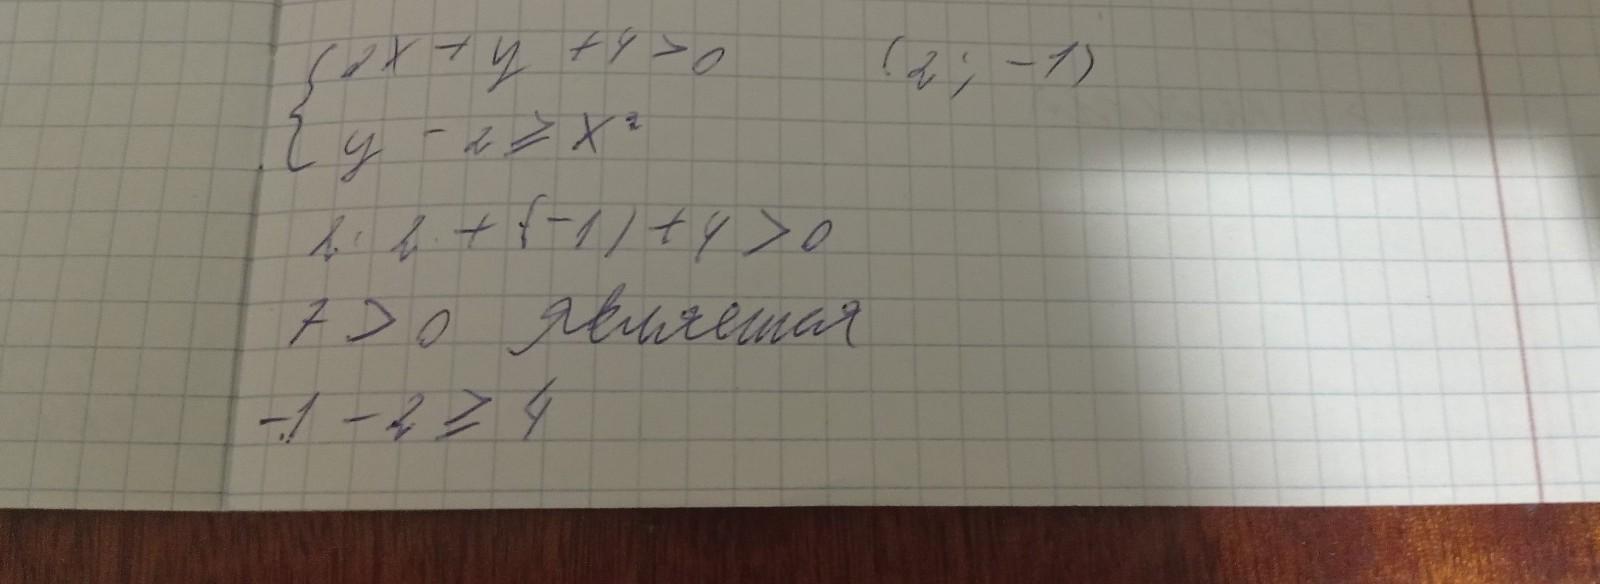 {2x + y + 4 > 0 (2; -1)
y - 2 ≥ x²
2 · 2 + (-1) + 4 > 0
7 > 0 является
-1 - 2 ≥ 4